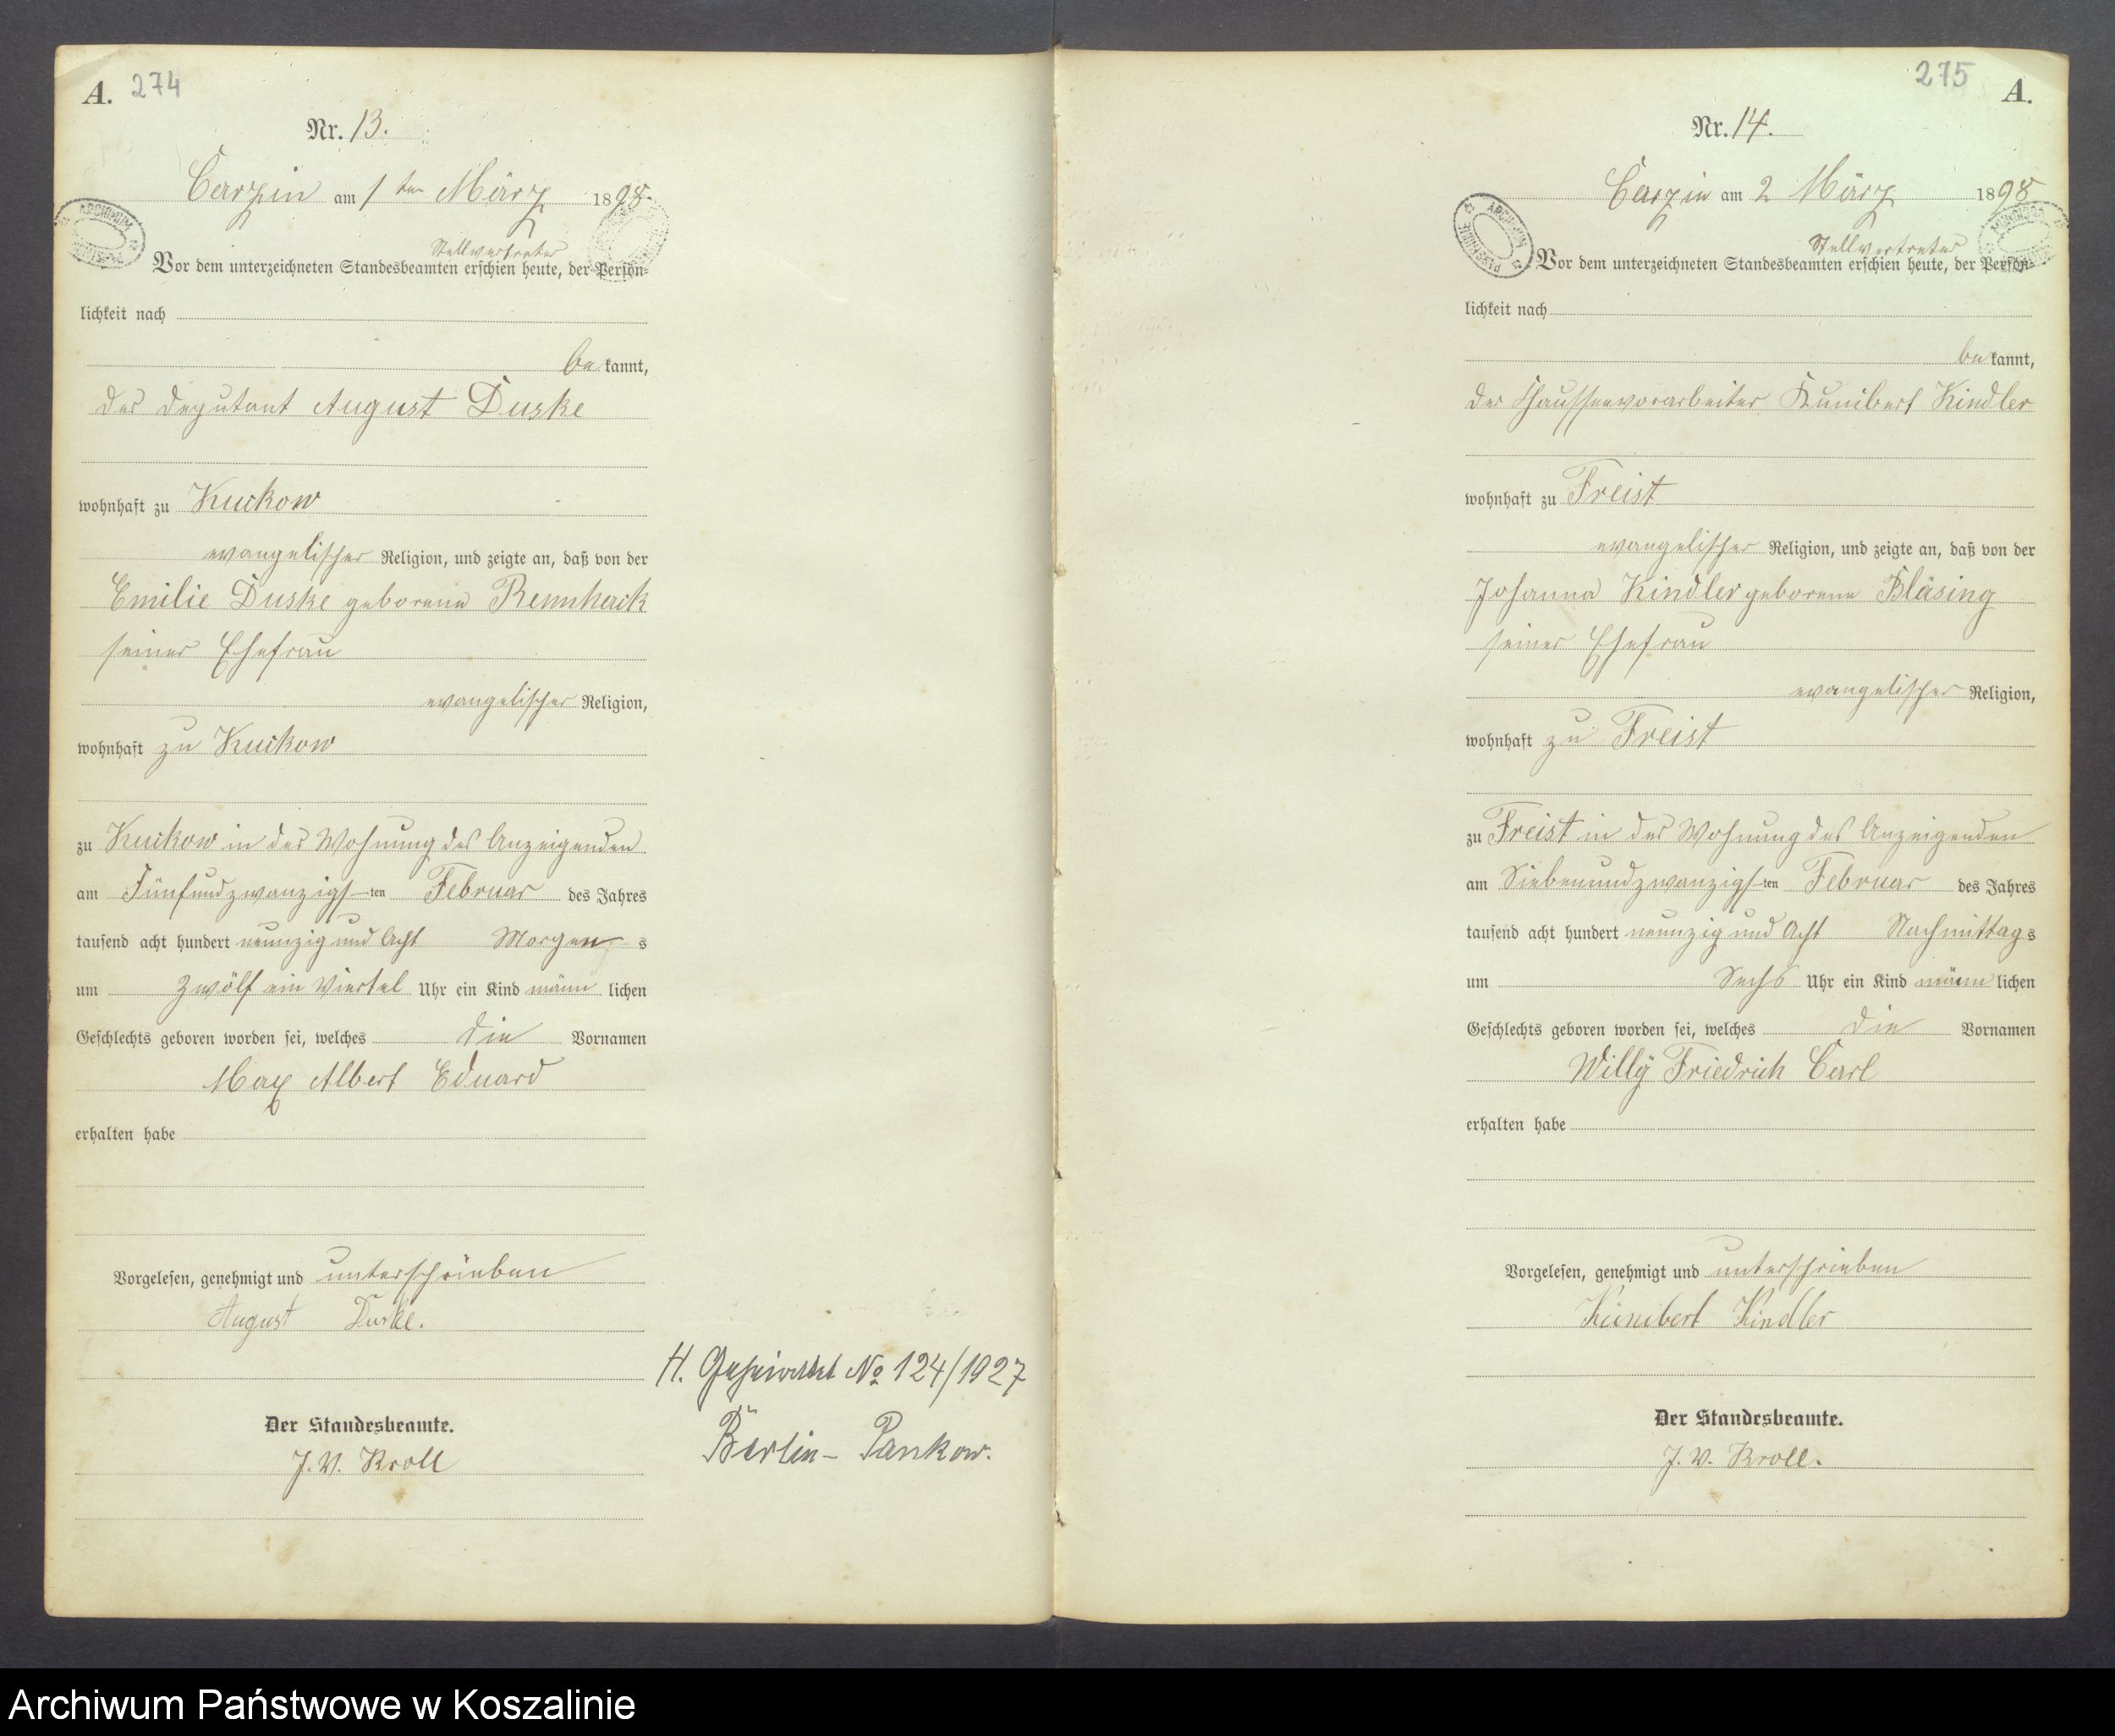 A. 274
Nr. 13.
Carzin am 1 ten März 1898.
Stellvertreter
Vor dem unterzeichneten Standesbeamten erschien heute, der Persön-
lichkeit nach
be kannt,
der Deputant August Duske
wohnhaft zu Kuckow
evangelischer Religion, und zeigte an, daß von der
Emilie Duske geborene
seiner Ehefrau
evangelischer Religion,
wohnhaft zu Kuckow
zu Kuckow in der Wohnung des Anzeigenden
am Fünfundzwanzigs ten Februar des Jahres
tausend acht hundert neunzig und Acht Morgens
um Zwölf ein Viertel Uhr ein Kind männ lichen
Geschlechts geboren worden sei, welches die Vornamen
Max Albert Eduard
erhalten habe
Vorgelesen, genehmigt und unterschrieben
August Duske.
Der Standesbeamte.
J. V. Kroll
H. Geheiratet No 124/1927
Berlin - Pankow.
275 A.
Nr. 14.
Carzin am 2 März 1898
Stellvertreter
Vor dem unterzeichneten Standesbeamten erschien heute, der Persön-
lichkeit nach
be kannt,
der Chausseevorarbeiter Kunibert Kindler
wohnhaft zu Freist
evangelischer Religion, und zeigte an, daß von der
Johanna Kindler geborene Bläsing
seiner Ehefrau
evangelischer Religion,
wohnhaft zu Freist
zu Freist in der Wohnung des Anzeigenden
am Siebenundzwanzigs ten Februar des Jahres
tausend acht hundert neunzig und Acht Nachmittags
um Sechs Uhr ein Kind männ lichen
Geschlechts geboren worden sei, welches die Vornamen
Willy Friedrich Carl
erhalten habe
Vorgelesen, genehmigt und unterschrieben
Kunibert Kindler
Der Standesbeamte.
J. V. Kroll.
Archiwum Państwowe w Koszalinie